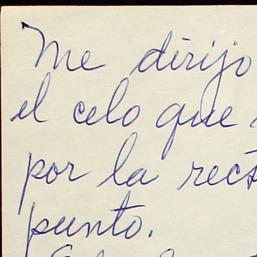 Me dirijo
el celo que
por la rect
punto.